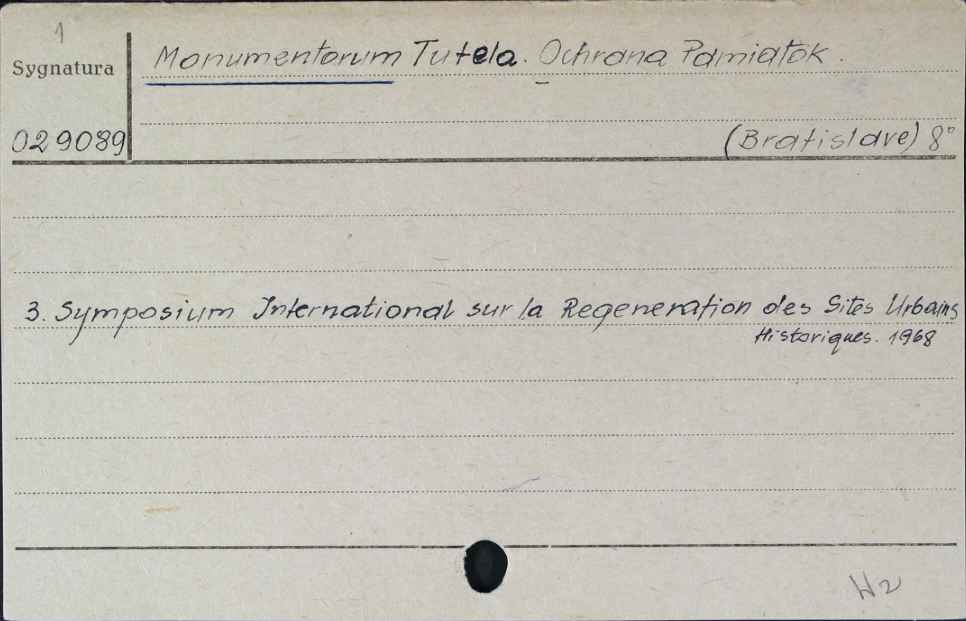 1
Sygnatura
Monumentorum Tutela. Ochrana Pamiatok.
029089
(Bratislave) 8°
3. Symposium International sur la Regeneration des Sites Urbains
Historiques. 1968
W2